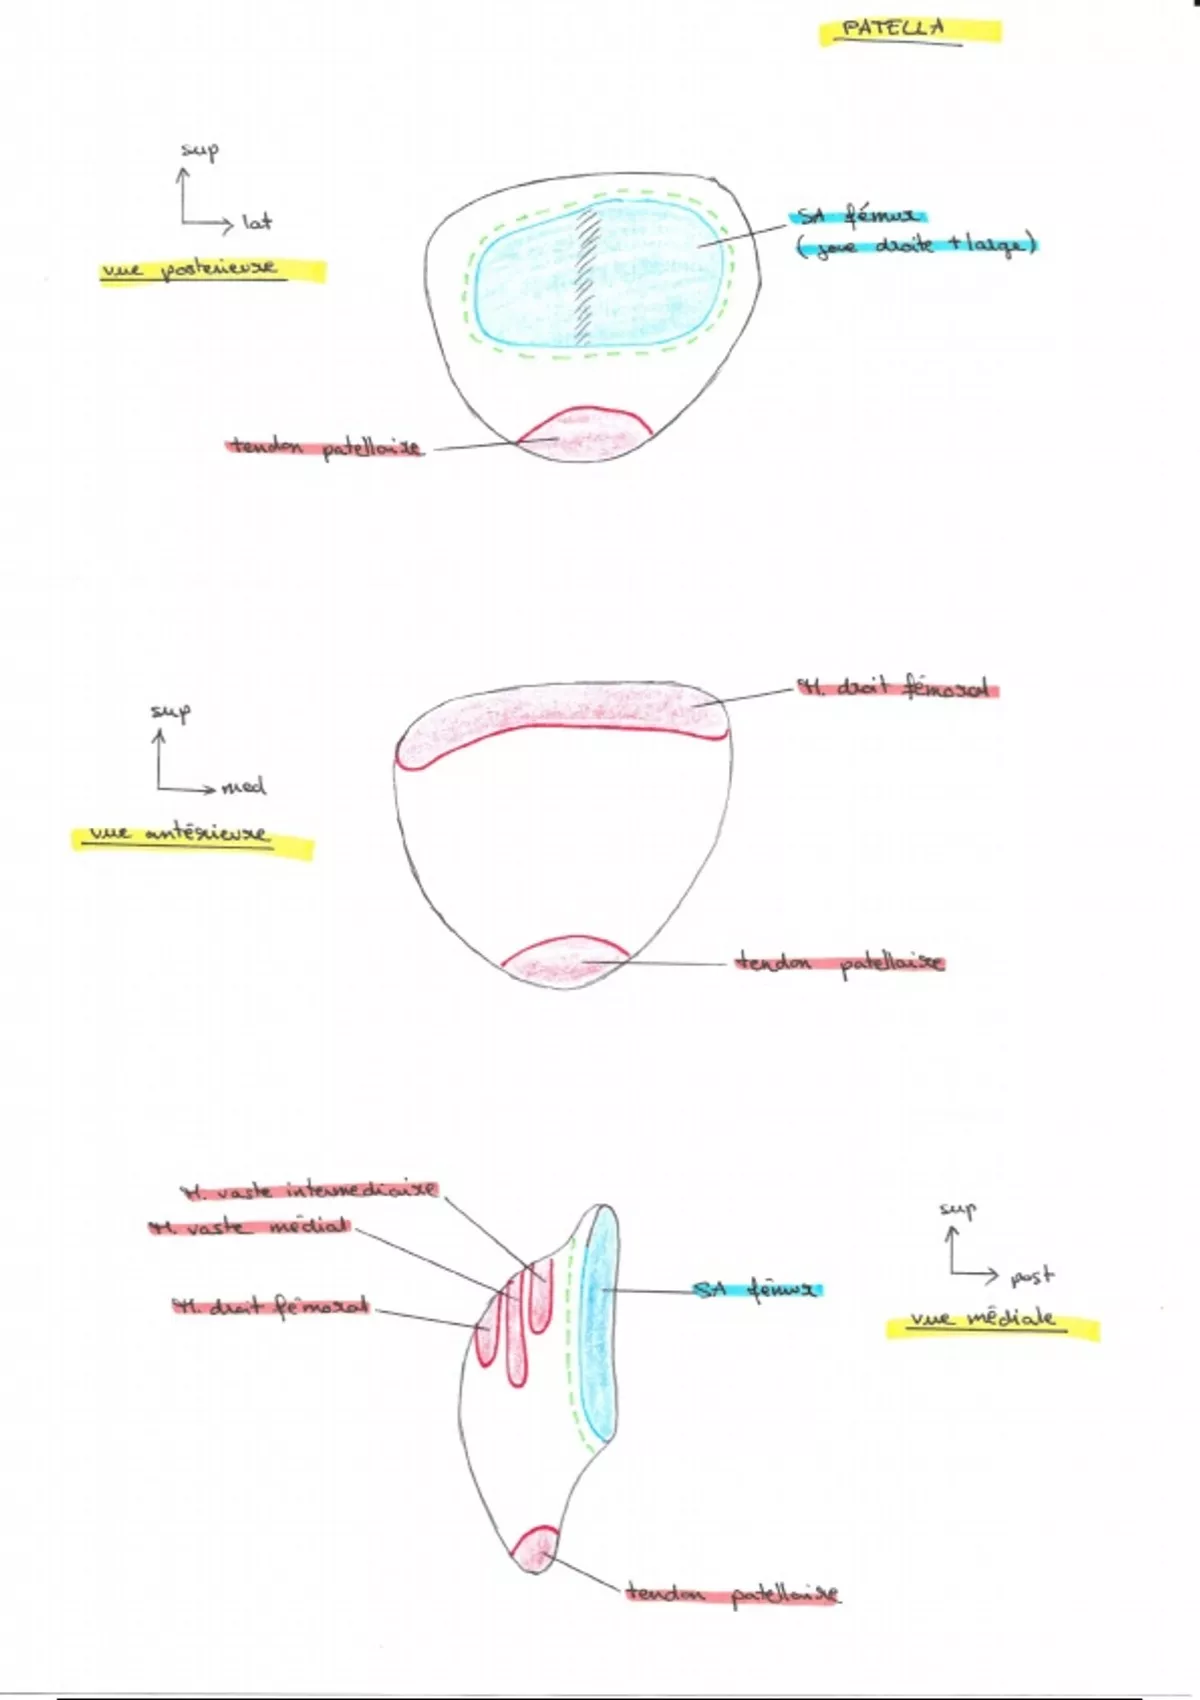 PATELLA
sup
lat
vue posterieure
SA fémur
(joue droite + large)
tendon patellaire
M. droit fémoral
sup
med
vue antérieure
tendon patellaire
M. vaste intermediaire
M. vaste médial
M. droit fémoral
sup
post
SA fémur
vue médiale
tendon patellaire